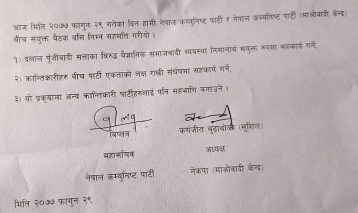 आज मिति २०७७ फागुन २९ गतेका दिन हामी नेपाल कम्युनिष्ट पार्टी र नेपाल कम्युनिष्ट पार्टी (माओवादी केन्द्र)
बीच संयुक्त बैठक बसि निम्न सहमति गरियो ।
१) दलाल पूँजीवादी सत्ताका विरुद्ध वैज्ञानिक समाजवादी व्यवस्था निमार्णार्थ संयुक्त रुपमा सहकार्य गर्ने,
२) क्रान्तिकारीहरु बीच पार्टी एकताको लक्ष राखी संघर्षमा सहकार्य गर्ने,
३) यो प्रकृयामा अन्य क्रान्तिकारी पार्टीहरुलाई पनि सहभागि बनाउने ।
विप्लव
कर्णजीत बुढाथोकी (सुशिल)
महासचिव
अध्यक्ष
नेपाल कम्युनिष्ट पार्टी
नेकपा (माओवादी केन्द्र)
मिति २०७७ फागुन २९